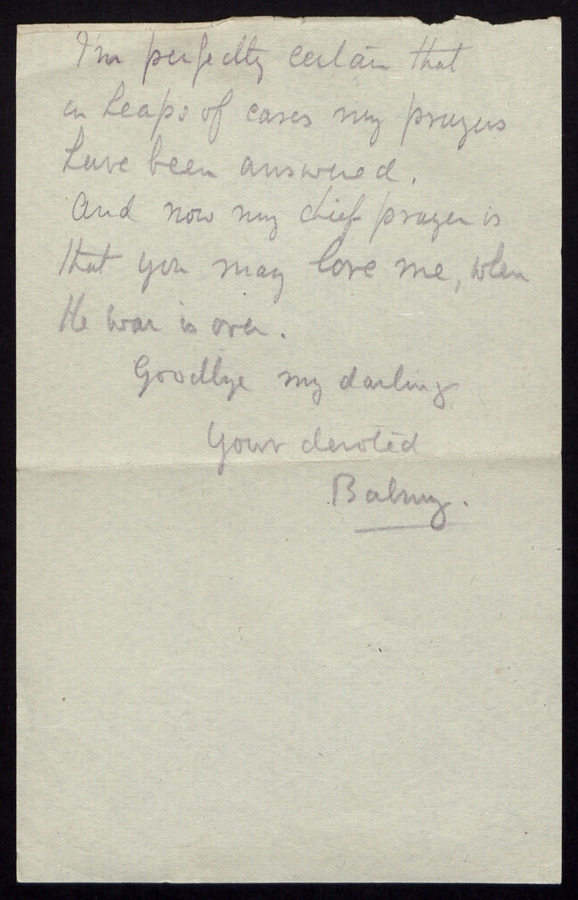 I'm perfectly certain that
in heaps of cases my prayers
have been answered.
And now my chief prayer is
that you may love me, when
the war is over.
Goodbye my darling
Your devoted
Balmy.